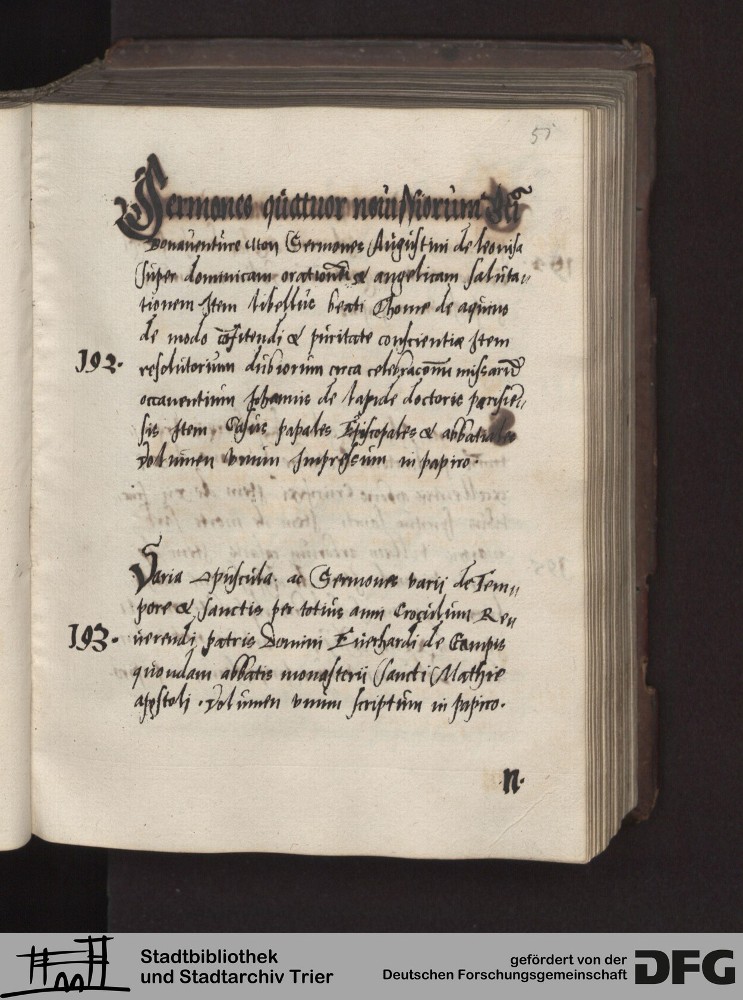 51
Sermones quatuor novissiorum Sti
Bonaventure Item Sermones Augustini de leonissa
super dominicam orationē & angelicam saluta„
tionem Item libellus beati Thome de aquino
de modo cōfitendi & puritate conscientiæ Item
192.
resolutorium dubiorum circa celebracionē missarū
occurentium Johannis de lapide doctoris parisiē„
sis Item. Casus papales Episcopales & abbatiales
Volumen vnum Impressum in papiro.
Varia opuscula. ac Sermones varij de Tem„
pore & sanctis per totius anni Croculum Re„
193.
uerendi patris Domini Euerhardi de Campis
quondam abbatis monasterij sancti Mathie
apostoli. Volumen vnum scriptum in papiro.
n.
Stadtbibliothek
und Stadtarchiv Trier
gefördert von der
Deutschen Forschungsgemeinschaft
DFG